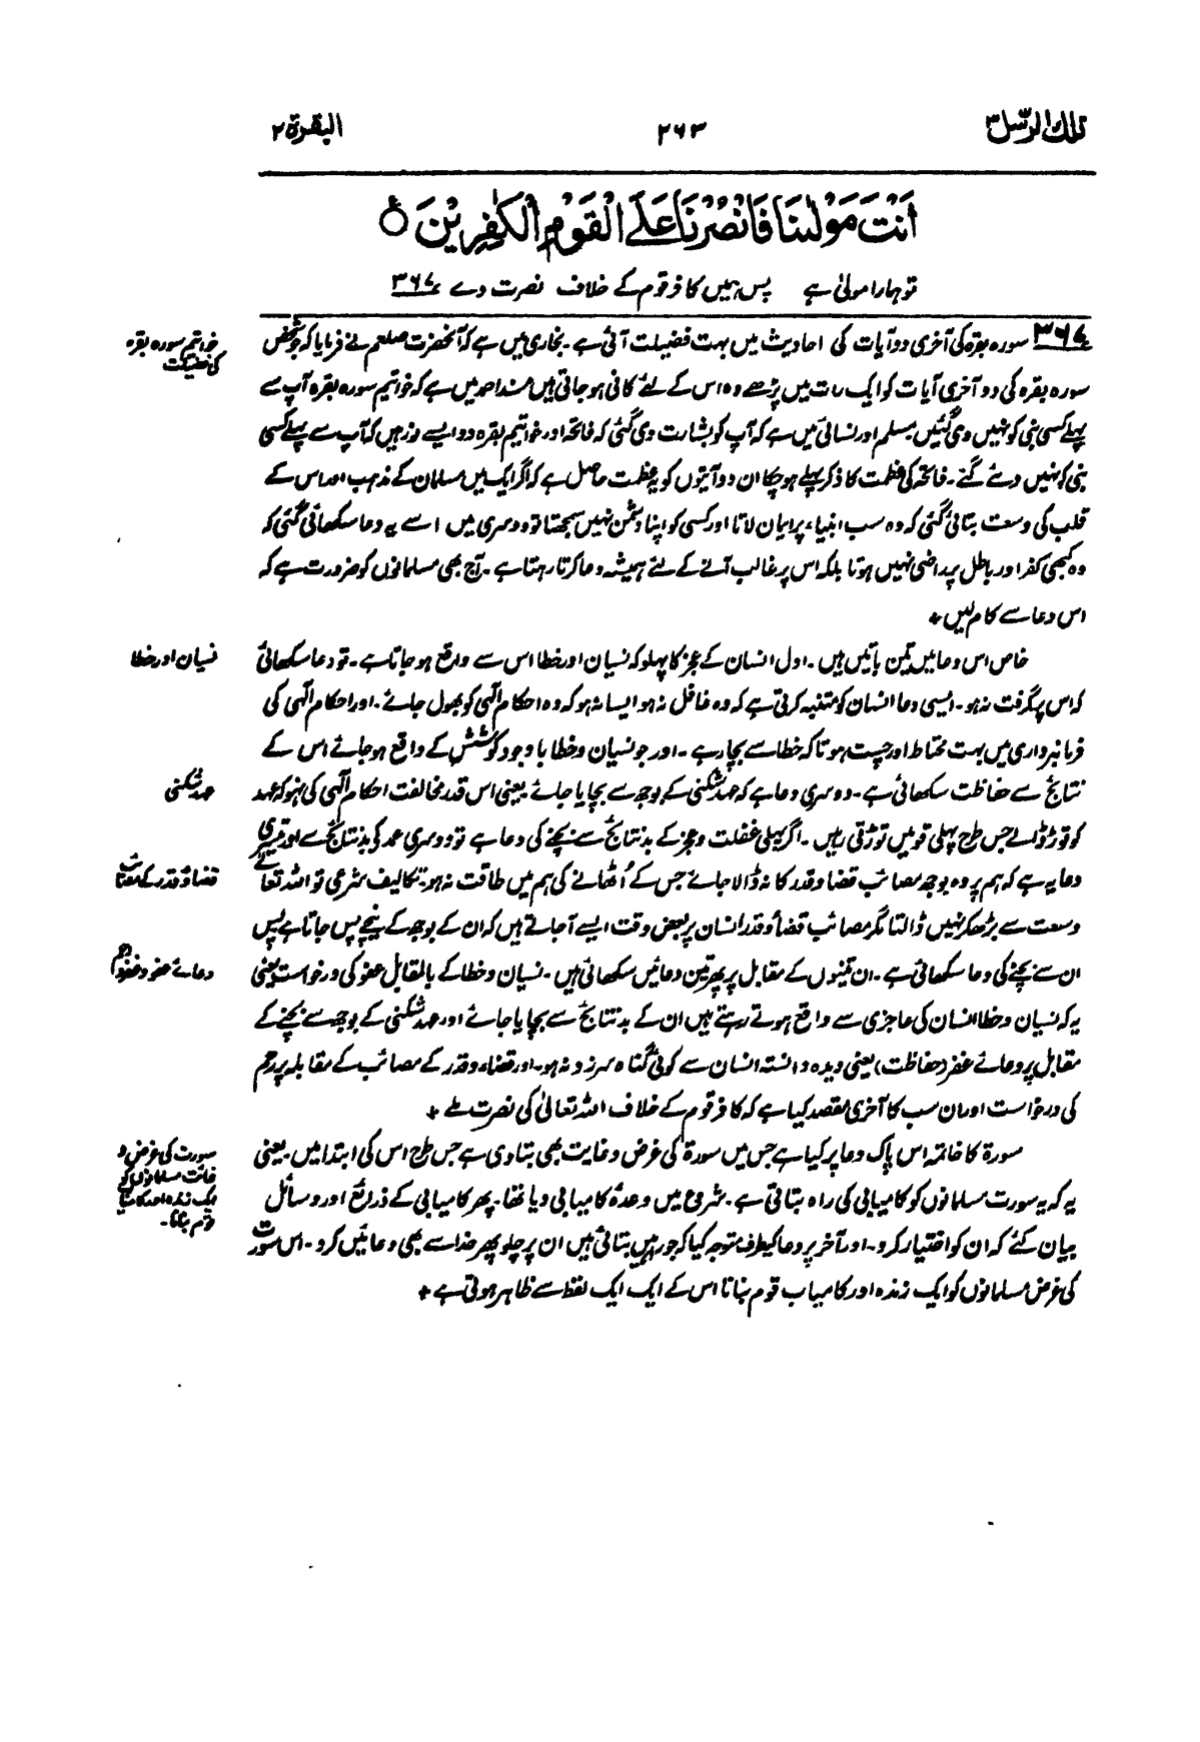 تلك الرسل ٣
٢٦٣
البقرة ٢
اَنْتَ مَوْلٰىنَا فَانْصُرْنَا عَلَى الْقَوْمِ الْكٰفِرِيْنَ ۝
تو ہمارا مولیٰ ہے پس ہمیں کافر قوم کے خلاف نصرت دے ۳۶۷
۳۶۷ سورہ بقرہ کی آخری دو آیات کی احادیث میں بہت فضیلت آئی ہے۔ بخاری میں ہے کہ آنحضرت صلعم نے فرمایا کہ جو شخص
خواتیم سورہ بقرہ کی فضیلت
سورہ بقرہ کی دو آخری آیات کو ایک رات میں پڑھے وہ اس کے لئے کافی ہو جاتی ہیں مسند احمد میں ہے کہ خواتیم سورہ بقرہ آپ سے
پہلے کسی نبی کو نہیں دی گئیں۔ مسلم اور نسائی میں ہے کہ آپ کو بشارت دی گئی کہ فاتحہ اور خواتیم بقرہ دو ایسے نور ہیں کہ آپ سے پہلے کسی
نبی کو نہیں دئے گئے۔ فاتحہ کی عظمت کا ذکر پہلے ہو چکا ان دو آیتوں کو یہ عظمت حاصل ہے کہ اگر ایک میں مسلمان کے مذہب اور اس کے
قلب کی وسعت بتائی گئی کہ وہ سب انبیاء پر ایمان لاتا اور کسی کو اپنا دشمن نہیں سمجھتا تو دوسری میں اسے یہ دعا سکھائی گئی کہ
وہ کبھی کفر اور باطل پر راضی نہیں ہوتا بلکہ اس پر غالب آنے کے لئے ہمیشہ دعا کرتا رہتا ہے۔ آج بھی مسلمانوں کو ضرورت ہے کہ
اس دعا سے کام لیں +
خاص اس دعا میں تین باتیں ہیں۔ اول انسان کے عجز کا پہلو کہ نسیان اور خطا اس سے واقع ہو جاتا ہے۔ تو دعا سکھائی
نسیان اور خطا
کہ اس پر گرفت نہ ہو۔ ایسی دعا انسان کو متنبہ کرتی ہے کہ وہ غافل نہ ہو ایسا نہ ہو کہ وہ احکام الٰہی کو بھول جائے۔ اور احکام الٰہی کی
فرمانبرداری میں بہت محتاط اور چست ہو تاکہ خطا سے بچا رہے۔ اور جو نسیان و خطا باوجود کوشش کے واقع ہو جائے اس کے
نتائج سے حفاظت سکھائی ہے۔ دوسری دعا ہے کہ عہد شکنی کے بوجھ سے بچایا جائے یعنی اس قدر مخالفت احکام الٰہی کی نہ ہو کہ عہد
عہد شکنی
کو توڑ ڈالے جس طرح پہلی قومیں توڑتی رہیں۔ اگر پہلی غفلت و عجز کے بد نتائج سے بچنے کی دعا ہے تو دوسری عمد کی بد نتائج سے اور تیسری
دعا یہ ہے کہ ہم پر وہ بوجھ مصائب قضا و قدر کا نہ ڈالا جائے جس کے اُٹھانے کی ہم میں طاقت نہ ہو۔ تکالیف شرعی تو اللہ تعالےٰ
قضا و قدر کے مصائب
وسعت سے بڑھکر نہیں ڈالتا مگر مصائب قضاؤ قدر انسان پر بعض وقت ایسے آجاتے ہیں کہ ان کے بوجھ کے نیچے پس جاتا ہے پس
ان سے بچنے کی دعا سکھائی ہے۔ ان تینوں کے مقابل پر پھر تین دعائیں سکھائی ہیں۔ نسیان و خطا کے بالمقابل عفو کی درخواست یعنی
دعائے عفو و غفر و رحم
یہ کہ نسیان و خطا انسان کی عاجزی سے واقع ہوتے رہتے ہیں ان کے بد نتائج سے بچایا جائے اور عہد شکنی کے بوجھ سے بچنے کے
مقابل پر دعائے غفر (حفاظت) یعنی دیدہ و دانستہ انسان سے کوئی گناہ سرزد نہ ہو۔ اور قضاء و قدر کے مصائب کے مقابلہ پر رحم
کی درخواست اور ان سب کا آخری مقصد کیا ہے کہ کافر قوم کے خلاف اللہ تعالیٰ کی نصرت ملے +
سورۃ کا خاتمہ اس پاک دعا پر کیا ہے جس میں سورۃ کی غرض و غایت بھی بتا دی ہے جس طرح اس کی ابتدا میں۔ یعنی
سورت کی غرض و غایت مسلمانوں کو ایک زندہ اور کامیاب قوم بنانا۔
یہ کہ یہ سورت مسلمانوں کو کامیابی کی راہ بتاتی ہے۔ شروع میں وعدۂ کامیابی دیا تھا۔ پھر کامیابی کے ذرائع اور وسائل
بیان کئے کہ ان کو اختیار کرو۔ اور آخر پر دعا کیطرف متوجہ کیا کہ جو راہیں بتائی ہیں ان پر چلو پھر خدا سے بھی دعائیں کرو۔ اس سورت
کی غرض مسلمانوں کو ایک زندہ اور کامیاب قوم بنانا اس کے ایک ایک لفظ سے ظاہر ہوتی ہے +